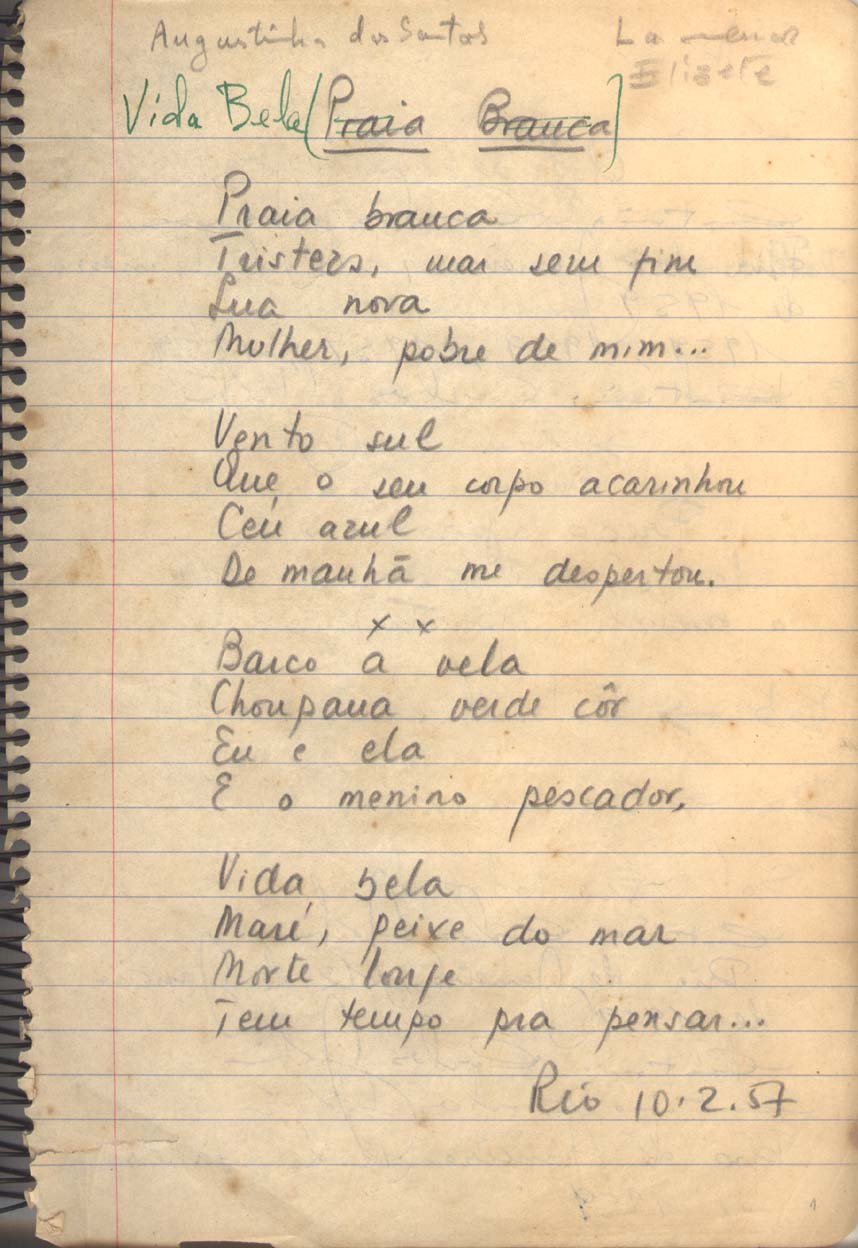 Augustinho dos Santos La menor
Elizete
Vida Bela (Praia Branca)
Praia branca
Tristeza, mar sem fim
Lua nova
Mulher, pobre de mim...
Vento sul
Que o seu corpo acarinhou
Céu azul
De manhã me despertou.
x x
Barco a vela
Choupana verde côr
Eu e ela
E o menino pescador,
Vida bela
Maré, peixe do mar
Morte longe
Tem tempo pra pensar...
Rio 10.2.57